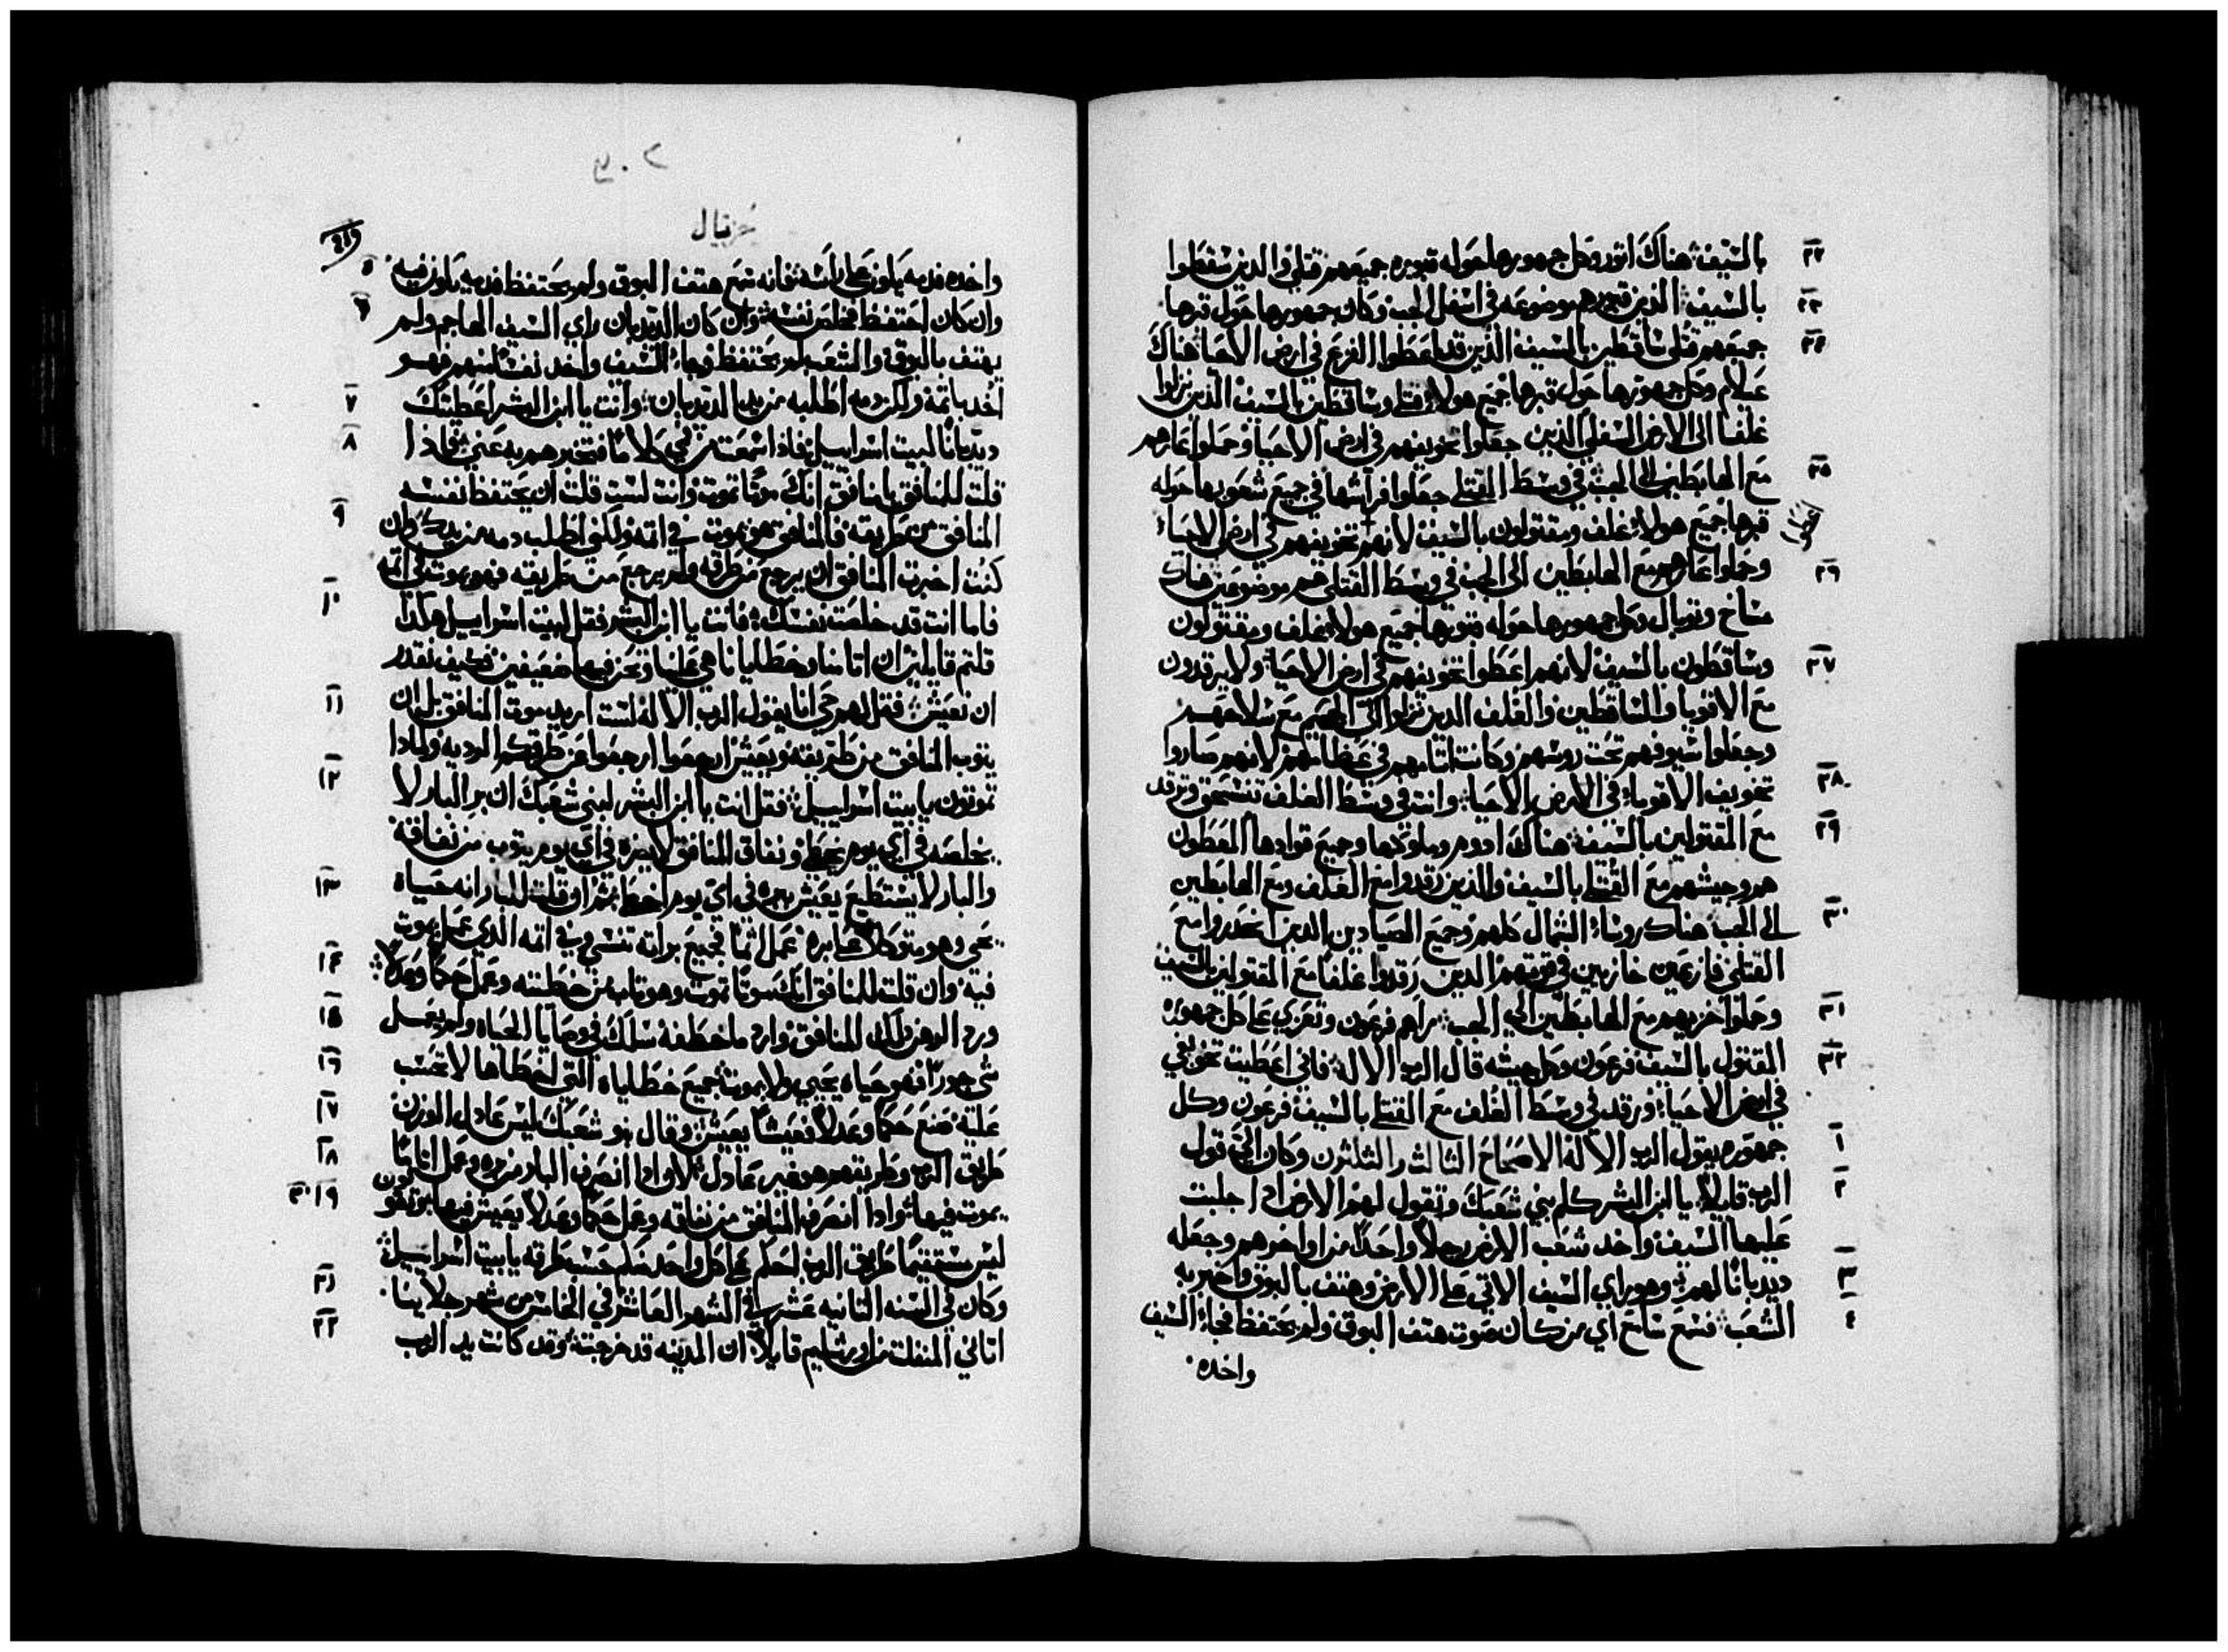 ٢٢ بالسيف هناك اتور وكل جمهورها حوله قبوره جميعهم قتلي والدين سقطوا
٢٣ بالسيف الدين قبورهم موضوعه في اسفل الجب وكان جمهورها حول قبرها
٢٤ جميعهم قتلي ساقطين بالسيف الذين قد اعطوا الفزع في ارض الاحيا هناك
علام وكل جمهورها حول قبرها جميع هولاء قتلي وساقطين بالسيف الذين نزلوا
غلفا الى الارض السفلي الذين جعلوا تخويفهم في ارض الاحيا وحملوا عارهم
٢٥ مع الهابطين الى الجب في وسط القتلي جعلوا فراشها في جميع شعوبها حوله
قبرها جميع هولاء غلف ومقتولون بالسيف لانهم تخويفهم في ارض الاحياء
اعطوا
٢٦ وحملوا عارهم مع الهابطين الى الجب في وسط القتلي هم موضوعين هناك
ماسخ وتوبال وكل جمهورها حوله قبورها جميع هولاء غلف ومقتولون
٢٧ وساقطون بالسيف لانهم اعطوا تخويفهم في ارض الاحيا ولا يرقدون
مع الاقويا والساقطين والغلف الدين نزلوا الى الجحيم مع سلاحهم
وجعلوا سيوفهم تحت روسهم وكانت اتامهم في عظامهم لانهم صاروا
٢٨ تخويف الاقوياء في الارض الاحيا وانت في وسط الغلف تنسحق وترقد
٢٩ مع المقتولين بالسيف هناك ادوم وملوكها وجميع قوادها المعطون
هم وجيشهم مع القتلي بالسيف والدين رقدوا مع الغلف ومع الهابطين
٣٠ الى الجب هناك روساء الشمال كلهم وجميع الصيادين الدين انحدروا مع
القتلي فازعين خازيين في قوتهم الدين رقدوا غلفا مع المقتولين بالسيف
٣١ وحملوا خزيهم مع الهابطين الي الجب راهم فرعون وتعزي على كل جمهوره
٣٢ المقتول بالسيف فرعون وكل جيشه قال الرب الاله فاني اعطيت تخويفي
في ارض الاحياء ورقد في وسط الغلف مع القتلي بالسيف فرعون وكل
١ جمهوره يقول الرب الاله الاصحاح الثالث والثلثون وكان الي قول
٢ الرب قايلا يا ابن البشر كلم بني شعبك وتقول لهم الارض ادا جلبت
عليها السيف واخد شعب الارض رجلا واحدا من اواخرهم وجعله
٣ ديدبانا لهم وهو راي السيف الاتي على الارض وهتف بالبوق واخبر به
٤ الشعب فسمع سامع اي من كان صوت هتف البوق ولم يحتفظ فجاء السيف
واخده
٣٠٢
حزقيال
٥ واخده فدمه يكون على راسه فانه سمع هتف البوق ولم يحتفظ فدمه يكون فيه
٦ وان كان احتفظ فخلص نفسه وان كان الديدبان راي السيف الهاجم ولم
يهتف بالبوق والشعب لم يحتفظ فجاء السيف واخد نفسا منهم فهو
٧ اخد باتمه ولكن دمه اطلبه من يد الديدبان وانت يا ابن البشر اعطيتك
٨ ديدبانا لبيت اسراييل فاذا سمعت من في كلاما فتخبرهم به عني فاذا
قلت للمنافق يا منافق انك موتا تموت وانت لست قلت ان يحتفظ نفسه
٩ المنافق من طريقه فالمنافق هو يموت في اتمه ولكني اطلب دمه من يدك وان
كنت اخبرت المنافق ان يرجع من طرقه ولم يرجع من طريقه فهو يموت في اتمه
١٠ فاما انت قد خلصت نفسك فانت يا ابن البشر فقل لبيت اسراييل هكذا
قلتم قايلين ان اتامنا وخطايانا هي علينا ونحن فيها ضعيفين فكيف نقدر
١١ ان نعيش فقل لهم حي انا يقول الرب الاله لست اريد موت المنافق بل ان
يتوب المنافق من طريقه ويعيش ارجعوا ارجعوا عن طرقكم الرديه ولمادا
١٢ تموتون يا بيت اسراييل فقل انت يا ابن البشر لبني شعبك ان بر البار لا
يخلصه في اي يوم يخطي ونفاق المنافق لا يضره في اي يوم يتوب من نفاقه
١٣ والبار لا يستطيع يعيش ببره في اي يوم اخطا ان قلت للبار انه حياه
يحي وهو متوكلا على بره عمل اتما فجميع براته تنسي وفي اتمه الذي عمل يموت
١٤ فيه وان قلت للمنافق انك موتا تموت وهو تاب من خطيته وعمل حكما وعدلا
١٥ ورد الرهن ذلك المنافق وارد ما خطفه سلك في وصايا الحياه ولم يعمل
١٦ شي جورا فهو حياه يحيي ولا يموت جميع خطاياه التي اخطاها لا تحسب
١٧ عليه صنع حكما وعدلا فعيشا يعيش وقال بنو شعبك ليس عادل الوزن
١٨ طريق الرب وطريقهم هو غير عادل لانه ادا انصرف البار من بره وعمل اتاما
١٩ ٢٠ يموت فيها وادا انصرف المنافق من نفاقه وعمل حكما وعدلا يعيش فيها وتقولون
ليس مستقيما طريق الرب احكم على كل واحد منكم حسب طرقه يا بيت اسراييل
٢١ وكان في السنه الثانيه عشر في الشهر العاشر في الخامس من شهر جلاينا
٢٢ اتاني المنفلت من اورشليم قايلا ان المدينه قد خربت وقد كانت يد الرب